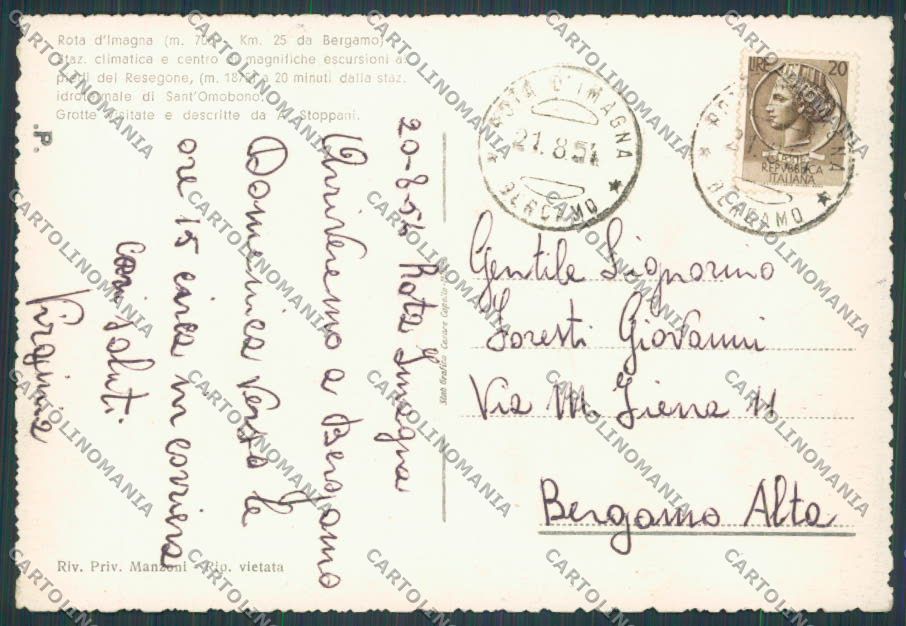 Rota d'Imagna (m. Km. 25 da Bergamo)
Staz. climatica e centro di magnifiche escursioni ai
piedi del Resegone, (m. 1875) a 20 minuti dalla staz.
idrotermale di Sant'Omobono.
Grotte visitate e descritte da A. Stoppani.
.P.
20-8-54 Rota Imagna
Arriveremo a Bergamo
Domenica verso le
ore 15 circa in corriera
Cari saluti.
Virginia
Riv. Priv. Manzoni - Rip. vietata
Stab Grafico Cesare Capello
ROTA D'IMAGNA
21.8.54
* BERGAMO *
LIRE 20
REPVBBLICA
ITALIANA
BERGAMO
Gentile Signorino
Foresti Giovanni
Via M. Gienna 11
Bergamo Alta
CARTOLINOMANIA